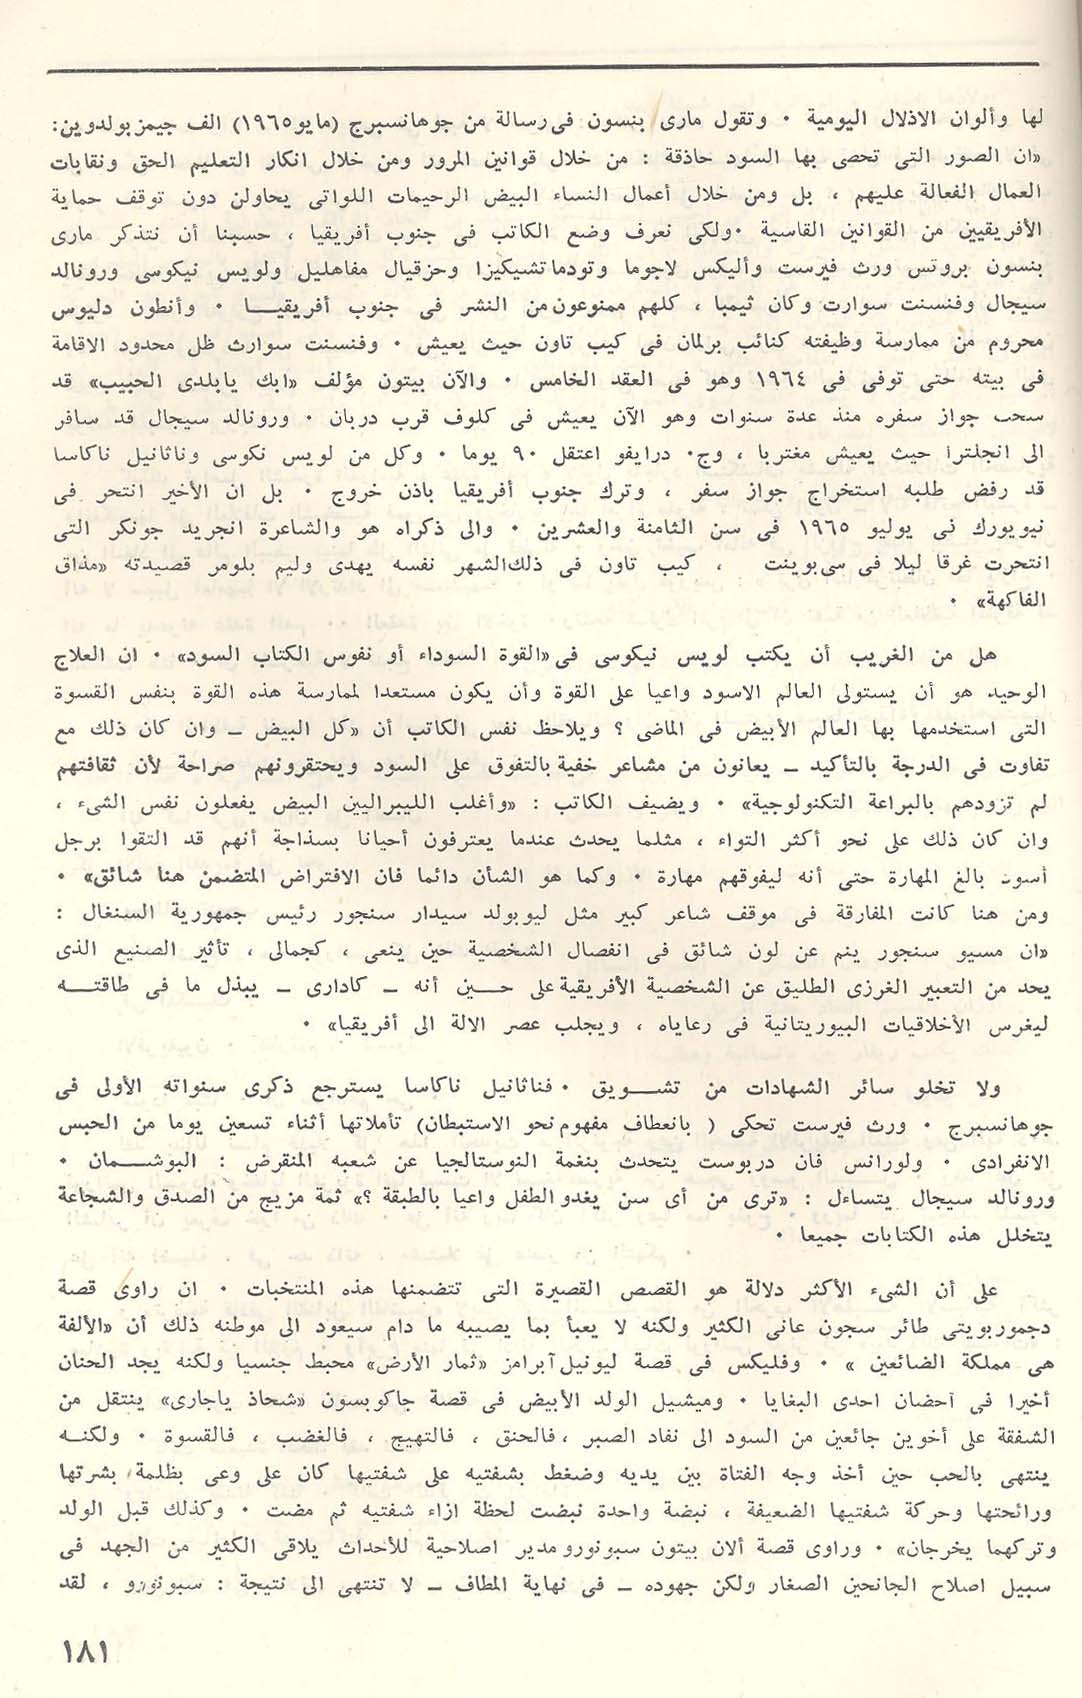 لها وألوان الاذلال اليومية ٠ وتقول مارى بنسون فى رسالة من جوهانسبرج (مايو ١٩٦٥) الف جيمز بولدوين:
«ان الصور التى تحصى بها السود حاذقة : من خلال قوانين المرور ومن خلال انكار التعليم الحق ونقابات
العمال الفعالة عليهم ، بل ومن خلال أعمال النساء البيض الرحيمات اللواتى يحاولن دون توقف حماية
الأفريقيين من القوانين القاسية ٠ ولكى نعرف وضع الكاتب فى جنوب أفريقيا ، حسبنا أن نتذكر مارى
بنسون بروتس ورث فيرست وأليكس لاجوما وتودماتشيكيزا وحزقيال مفاهليل ولويس نيكوسى ورونالد
سيجال وفنسنت سوارت وكان ثيمبا ، كلهم ممنوعون من النشر فى جنوب أفريقيـــا ٠ وأنطون دليوس
محروم من ممارسة وظيفته كنائب برلمان فى كيب تاون حيث يعيش ٠ وفنسنت سوارث ظل محدود الاقامة
فى بيته حتى توفى فى ١٩٦٤ وهو فى العقد الخامس ٠ والآن بيتون مؤلف «ابك يابلدى الحبيب» قد
سحب جواز سفره منذ عدة سنوات وهو الآن يعيش فى كلوف قرب دربان ٠ ورونالد سيجال قد سافر
الى انجلترا حيث يعيش مغتربا ، وج٠ درايفو اعتقل ٩٠ يوما ٠ وكل من لويس نكوسى وناثانيل ناكاسا
قد رفض طلبه استخراج جواز سفر ، وترك جنوب أفريقيا باذن خروج ٠ بل ان الأخير انتحر فى
نيويورك فى يوليو ١٩٦٥ فى سن الثامنة والعشرين ٠ والى ذكراه هو والشاعرة انجريد جونكر التى
انتحرت غرقا ليلا فى سى بوينت ، كيب تاون فى ذلك الشهر نفسه يهدى وليم بلومر قصيدته «مذاق
الفاكهة» ٠
هل من الغريب أن يكتب لويس نيكوسى فى «القوة السوداء أو نفوس الكتاب السود» ٠ ان العلاج
الوحيد هو أن يستولى العالم الاسود واعيا على القوة وأن يكون مستعدا لممارسة هذه القوة بنفس القسوة
التى استخدمها بها العالم الأبيض فى الماضى ؟ ويلاحظ نفس الكاتب أن «كل البيض ــ وان كان ذلك مع
تفاوت فى الدرجة بالتأكيد ــ يعانون من مشاعر خفية بالتفوق على السود ويحتقرونهم صراحة لأن ثقافتهم
لم تزودهم بالبراعة التكنولوجية» ٠ ويضيف الكاتب : «وأغلب الليبراليين البيض يفعلون نفس الشىء ،
وان كان ذلك على نحو أكثر التواء ، مثلما يحدث عندما يعترفون أحيانا بسذاجة أنهم قد التقوا برجل
أسود بالغ المهارة حتى أنه ليفوقهم مهارة ٠ وكما هو الشأن دائما فان الافتراض المتضمن هنا شائق» ٠
ومن هنا كانت المفارقة فى موقف شاعر كبير مثل ليوبولد سيدار سنجور رئيس جمهورية السنغال :
«ان مسيو سنجور ينم عن لون شائق فى انفصال الشخصية حين ينعى ، كجمالى ، تأثير الصنيع الذى
يحد من التعبير الغرزى الطليق عن الشخصية الأفريقية على حــين أنه ــ كادارى ــ يبذل ما فى طاقتــه
ليغرس الأخلاقيات البيوريتانية فى رعاياه ، ويجلب عصر الالة الى أفريقيا» ٠
ولا تخلو سائر الشهادات من تشـــويق ٠ فناثانيل ناكاسا يسترجع ذكرى سنواته الأولى فى
جوهانسبرج ٠ ورث فيرست تحكى ( بانعطاف مفهوم نحو الاستبطان) تأملاتها أثناء تسعين يوما من الحبس
الانفرادى ٠ ولورانس فان دربوست يتحدث بنغمة النوستالجيا عن شعبه المنقرض : البوشـــمان ٠
ورونالد سيجال يتساءل : «ترى من أى سن يغدو الطفل واعيا بالطبقة ؟» ثمة مزيج من الصدق والشجاعة
يتخلل هذه الكتابات جميعا ٠
على أن الشىء الأكثر دلالة هو القصص القصيرة التى تتضمنها هذه المنتخبات ٠ ان راوى قصة
دجموربويتى طائر سجون عانى الكثير ولكنه لا يعبأ بما يصيبه ما دام سيعود الى موطنه ذلك أن «الألفة
هى مملكة الضائعين » ٠ وفليكس فى قصة ليونيل آبرامز «ثمار الأرض» محبط جنسيا ولكنه يجد الحنان
أخيرا فى أحضان احدى البغايا ٠ وميشيل الولد الأبيض فى قصة جاكوبسون «شحاذ ياجارى» ينتقل من
الشفقة على أخوين جائعين من السود الى نفاد الصبر ، فالحنق ، فالتهيج ، فالغضب ، فالقسوة ٠ ولكنــه
ينتهى بالحب حين أخذ وجه الفتاة بين يديه وضغط بشفتيه على شفتيها كان على وعى بظلمة بشرتها
ورائحتها وحركة شفتيها الضعيفة ، نبضة واحدة نبضت لحظة ازاء شفتيه ثم مضت ٠ وكذلك قبل الولد
وتركهما يخرجان» ٠ وراوى قصة ألان بيتون سبونورو مدير اصلاحية للأحداث يلاقى الكثير من الجهد فى
سبيل اصلاح الجانحين الصغار ولكن جهوده ــ فى نهاية المطاف ــ لا تنتهى الى نتيجة : سبونورو ، لقد
١٨١